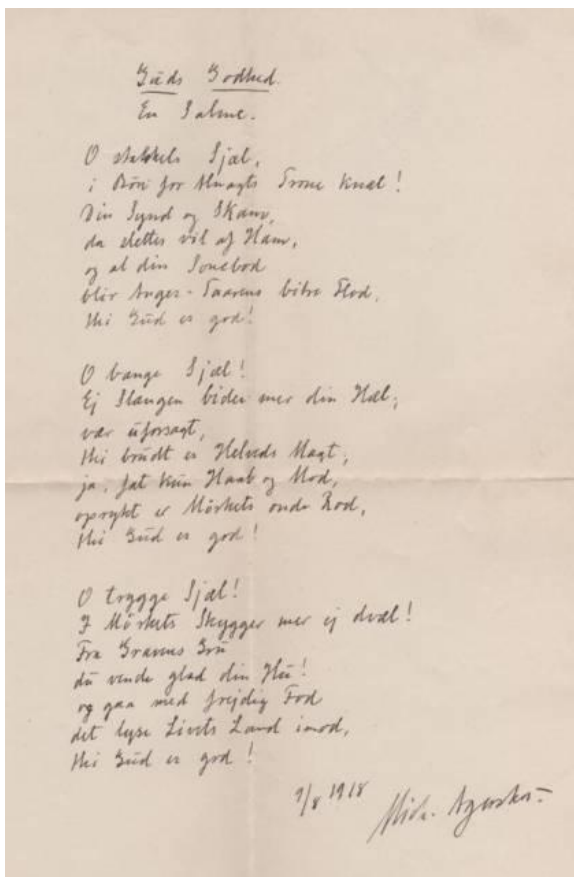 Guds Godhed.
En Salme.
O stakkels Sjæl,
i Bøn for Almagts Trone knæl!
Din Synd og Skam,
da slettes vil af Ham,
og al din Sonebod
blir Anger-Taarens bitre Flod,
thi Gud er god!
O bange Sjæl!
Ej Slangen bider mer din Hæl;
vær uforsagt,
thi brudt er Helveds Magt;
ja, fat kun Haab og Mod,
oprykt er Mörkets onde Rod,
thi Gud er god!
O trygge Sjæl!
I Mörkets Skygger mer ej dvæl!
Fra Gravens Gru
du vende glad din Hu!
og gaa med frejdig Fod
det lyse Livets Land imod,
thi Gud er god!
9/8 1918
Mich. Agerskov